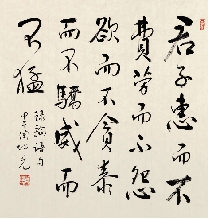 君子惠而不
費勞而不怨
欲而不貪泰
而不驕威而
不猛
論語句